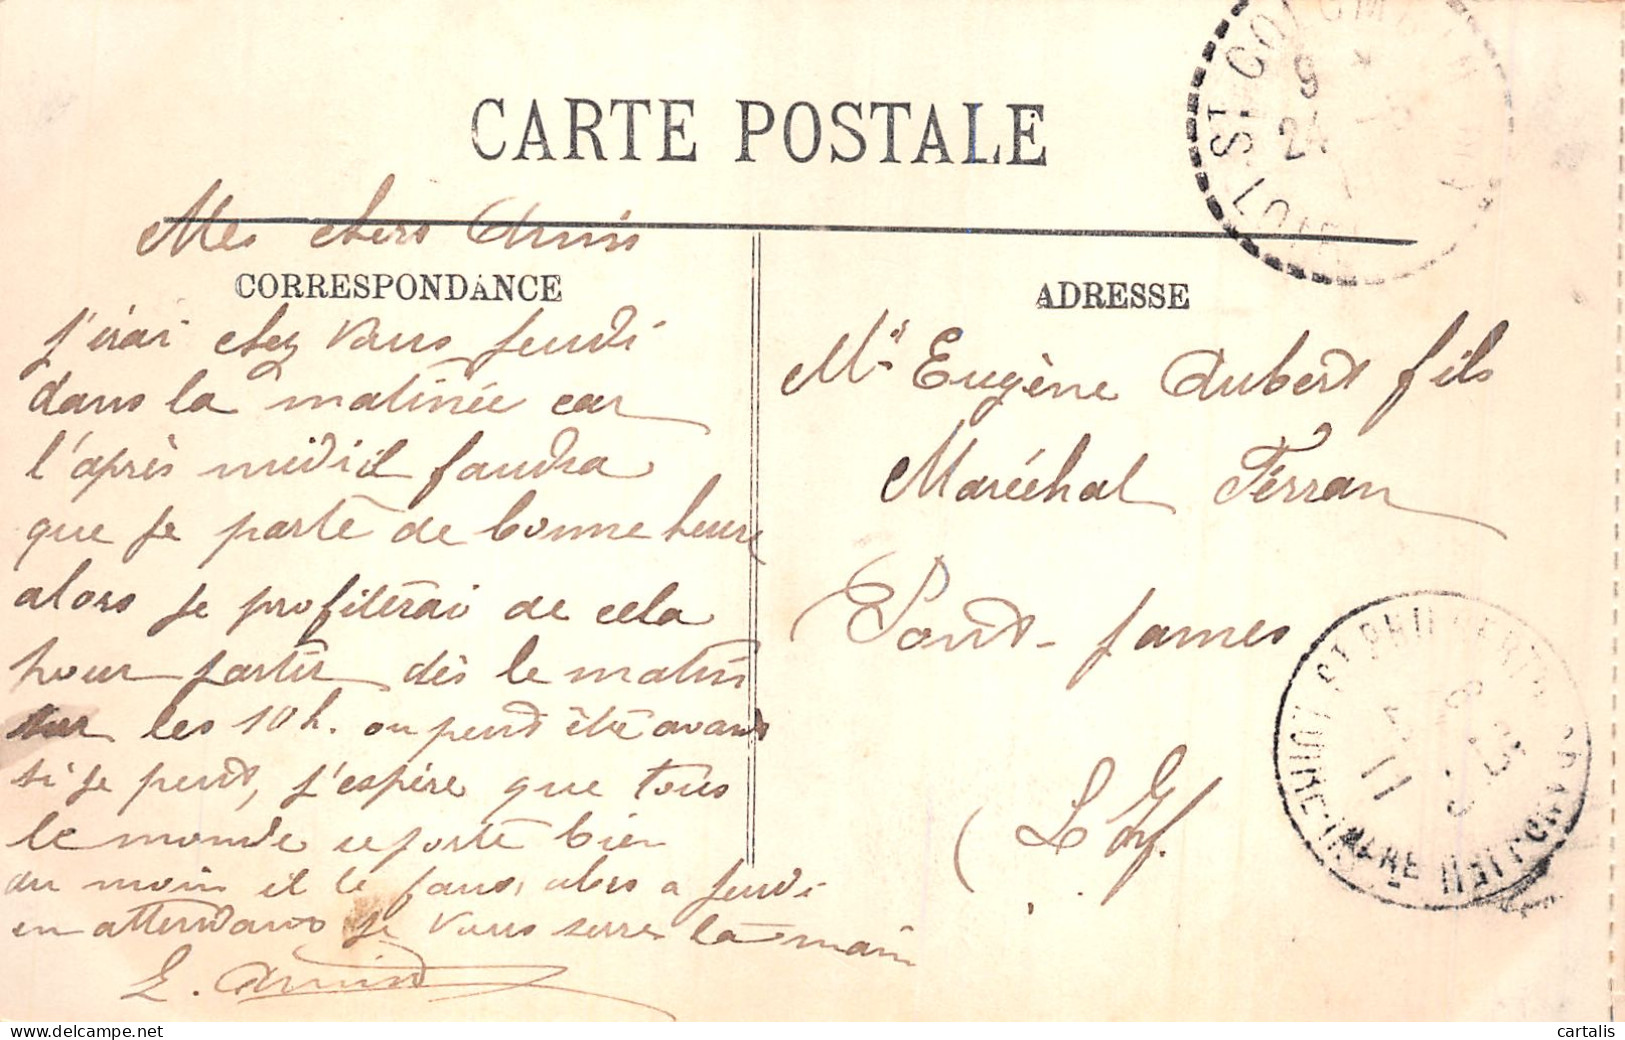 CARTE POSTALE
Mes chers Amis
CORRESPONDANCE
j'irai chez vous jeudi
dans la matinée car
l'après midi il faudra
que je parte de bonne heure
alors je profiterai de cela
pour partir dès le matin
sur les 10h. ou peut être avant
si je peut, j'espère que tous
le monde se porte bien
du moin il le faus, alors a jeudi
en attendant je vous serre la main
ADRESSE
Mr Eugène Aubert fils
Maréchal Ferran
Pont-James
L. Inf.
ST COLOMBAN
9
24
ST PHILBERT-DE-GRAND-LIEU
LOIRE-INFRE
11
cartalis